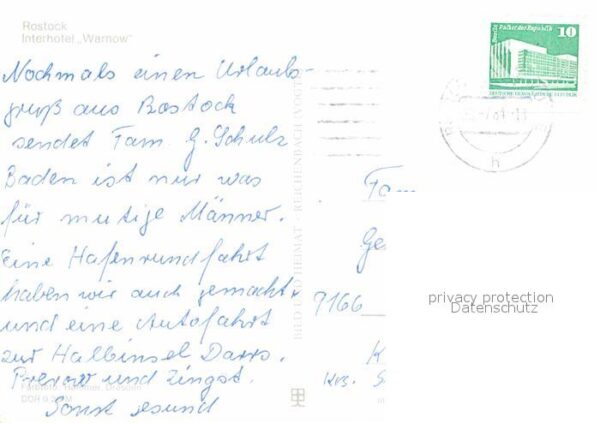 Rostock
Interhotel „Warnow"
Nochmals einen Urlaubs-
gruß aus Rostock
sendet Fam. G. Schulz
Baden ist nur was
für mutige Männer.
Eine Hafenrundfahrt
haben wir auch gemacht
und eine Autofahrt
zur Halbinsel Darss.
Prerow und Zingst.
Sonst gesund
BILD UND HEIMAT REICHENBACH
Berlin, Palast der Republik
10
DEUTSCHE DEMOKRATISCHE REPUBLIK
h
Fam
Ge
7166
K
Krs. S
privacy protection
Datenschutz